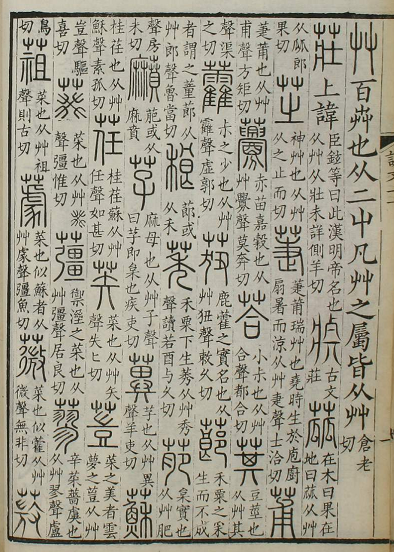 艸百芔也从二屮凡艸之屬皆从艸倉老切
莊上諱臣鉉等曰此漢明帝名也从艸从壯未詳側羊切𤖛古文莊蓏在木曰果在地曰蓏从艸
从㼌郎果切芝神艸也从艸从之止而切萐萐莆瑞艸也堯時生於庖廚扇暑而涼从艸疌聲士洽切莆
萐莆也从艸甫聲方矩切虋赤苗嘉穀也从艸釁聲莫奔切荅小尗也从艸合聲都合切萁豆莖也从艸其
聲渠之切藿尗之少也从艸靃聲虛郭切莥鹿藿之實名也从艸狃聲敕久切蓈禾粟之采生而不成
者謂之董蓈从艸郎聲魯當切稂蓈或从禾莠禾粟下生莠从艸秀聲讀若酉与久切萉枲實也从艸肥
聲房未切𪎰萉或从麻賁芓麻母也从艸子聲一曰芓即枲也疾吏切𦳝芓也从艸異聲羊吏切蘇
桂荏也从艸穌聲素孤切荏桂荏蘇从艸任聲如甚切𦬆菜也从艸矢聲失匕切䔇菜之美者雲夢之䔇从艸
豈聲驅喜切葵菜也从艸癸聲彊惟切䕬禦溼之菜也从艸彊聲居良切蓼辛菜薔虞也从艸翏聲盧
鳥切蒩菜也从艸祖聲則古切蘧菜也似蘇者从艸豦聲彊魚切薇菜也似藿从艸微聲無非切